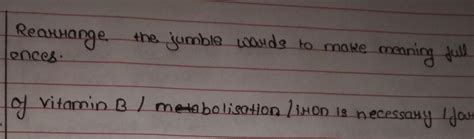 Rearrange the jumble words to make meaning full
onces.
of vitamin B / metabolisation / iron is necessary / for